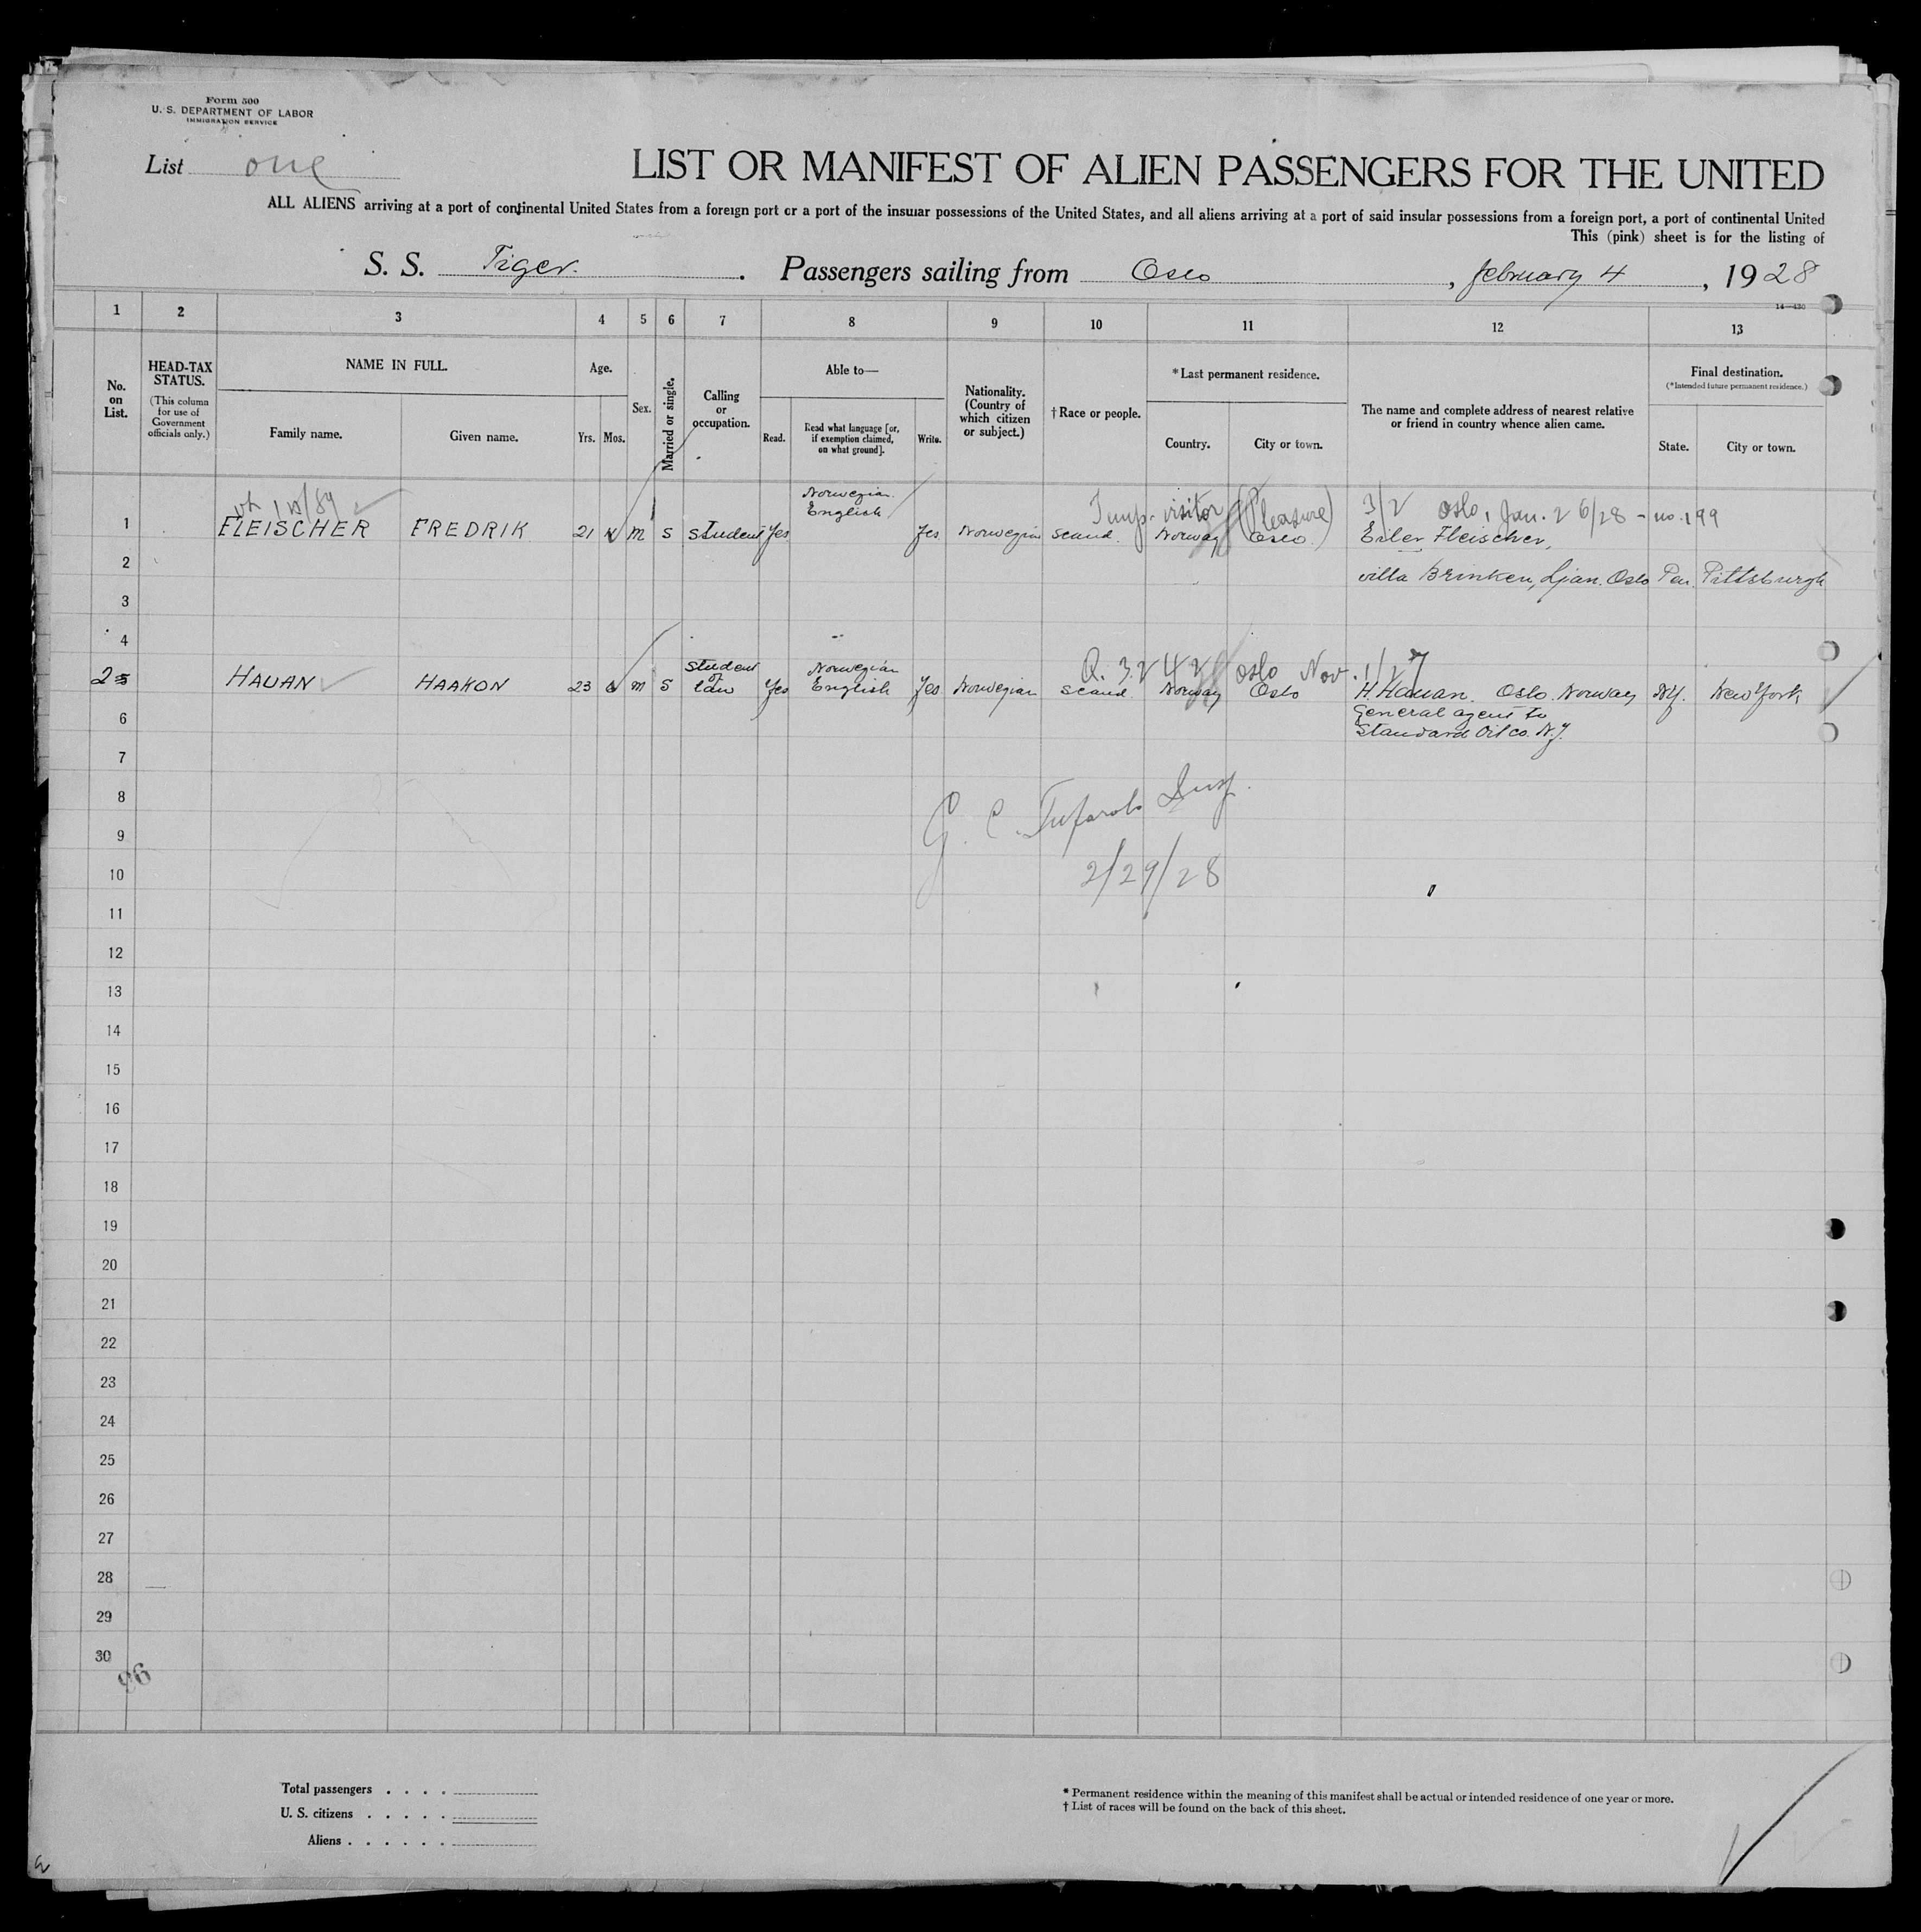 Form 500
U. S. DEPARTMENT OF LABOR
IMMIGRATION SERVICE
List one
LIST OR MANIFEST OF ALIEN PASSENGERS FOR THE UNITED
ALL ALIENS arriving at a port of continental United States from a foreign port or a port of the insular possessions of the United States, and all aliens arriving at a port of said insular possessions from a foreign port, a port of continental United
This (pink) sheet is for the listing of
S. S. Tiger. Passengers sailing from Oslo, february 4, 1928
14—430
1 2 3 4 5 6 7 8 9 10 11 12 13
No. on List.
HEAD-TAX STATUS.
(This column for use of Government officials only.)
NAME IN FULL.
Family name. Given name.
Age.
Yrs. Mos.
Sex.
Married or single.
Calling or occupation.
Able to—
Read. Read what language [or, if exemption claimed, on what ground]. Write.
Nationality. (Country of which citizen or subject.)
†Race or people.
*Last permanent residence.
Country. City or town.
The name and complete address of nearest relative or friend in country whence alien came.
Final destination.
(*Intended future permanent residence.)
State. City or town.
Temp. visitor (Pleasure) 3/2 Oslo, Jan. 26/28 - no. 199
1 FLEISCHER FREDRIK 21 m s student Yes Norwegian English Yes Norwegian Scand. Norway Oslo Eiler Fleischer,
2 villa Brinken, Ljan. Oslo Pen. Pittsburgh
3
4
Q. 3242 Oslo Nov. 1/27
25 HAUAN HAAKON 23 m s student of law Yes Norwegian English Yes Norwegian Scand. Norway Oslo H. Hauan. Oslo. Norway NY. New York
6 General agent to
Standard Oil co. N.J.
7
8
G. C. Insp.
9
10 2/29/28
11
12
13
14
15
16
17
18
19
20
21
22
23
24
25
26
27
28
29
30
96
Total passengers . . . .
U. S. citizens . . . . .
Aliens . . . . . .
* Permanent residence within the meaning of this manifest shall be actual or intended residence of one year or more.
† List of races will be found on the back of this sheet.